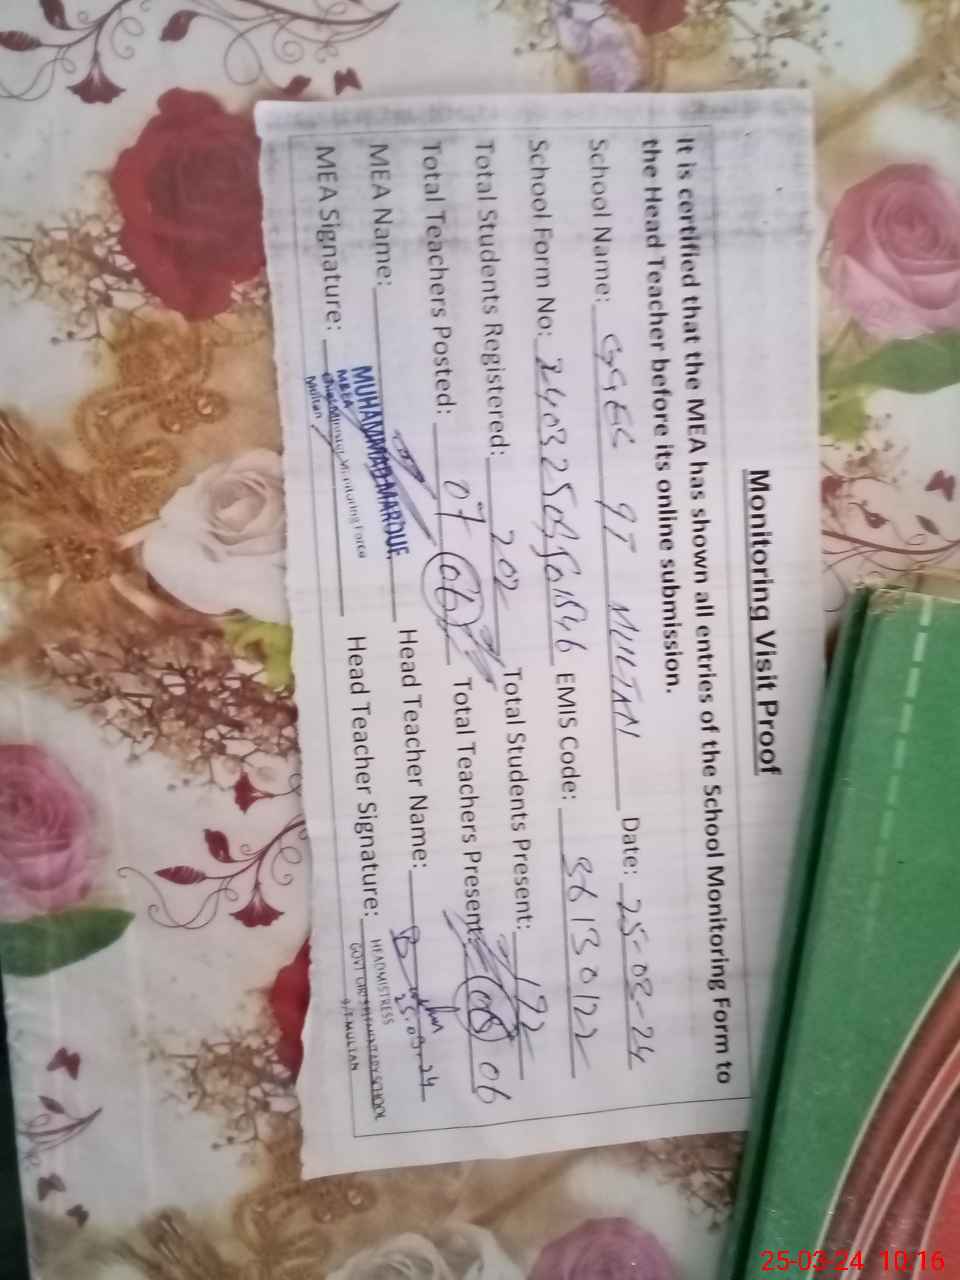 Monitoring Visit Proof
It is certified that the MEA has shown all entries of the School Monitoring Form to
the Head Teacher before its online submission.
School Name: GGES 9T MULTAN Date: 25-03-24
School Form No: EMIS Code: 36130122
Total Students Registered: 202 Total Students Present: 192
Total Teachers Posted: 07 06 Total Teachers Present: 06
MEA Name: MUHAMMAD MAROUF Head Teacher Name: 25.03.24
MEA Signature: MEA Head Teacher Signature: HEADMISTRESS
Chief Minister Monitoring Force GOVT GIRLS ELEMENTARY SCHOOL
Multan 9/T MULTAN
25-03-24 10:16